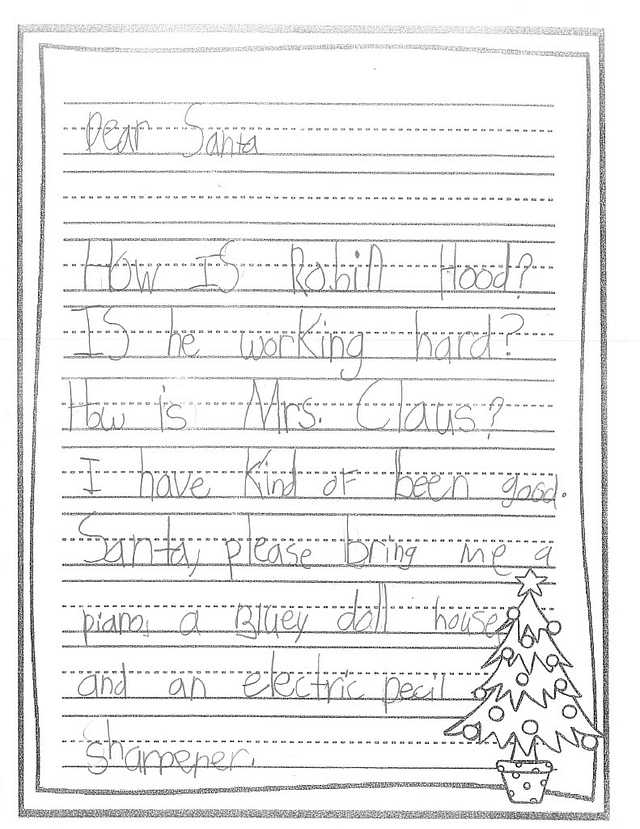 Dear Santa
How IS Robin Hood?
IS he working hard?
How is Mrs. Claus?
I have Kind oF been good.
Santa, please bring me a
piano, a Bluey doll house,
and an electric pecil
sharpener.